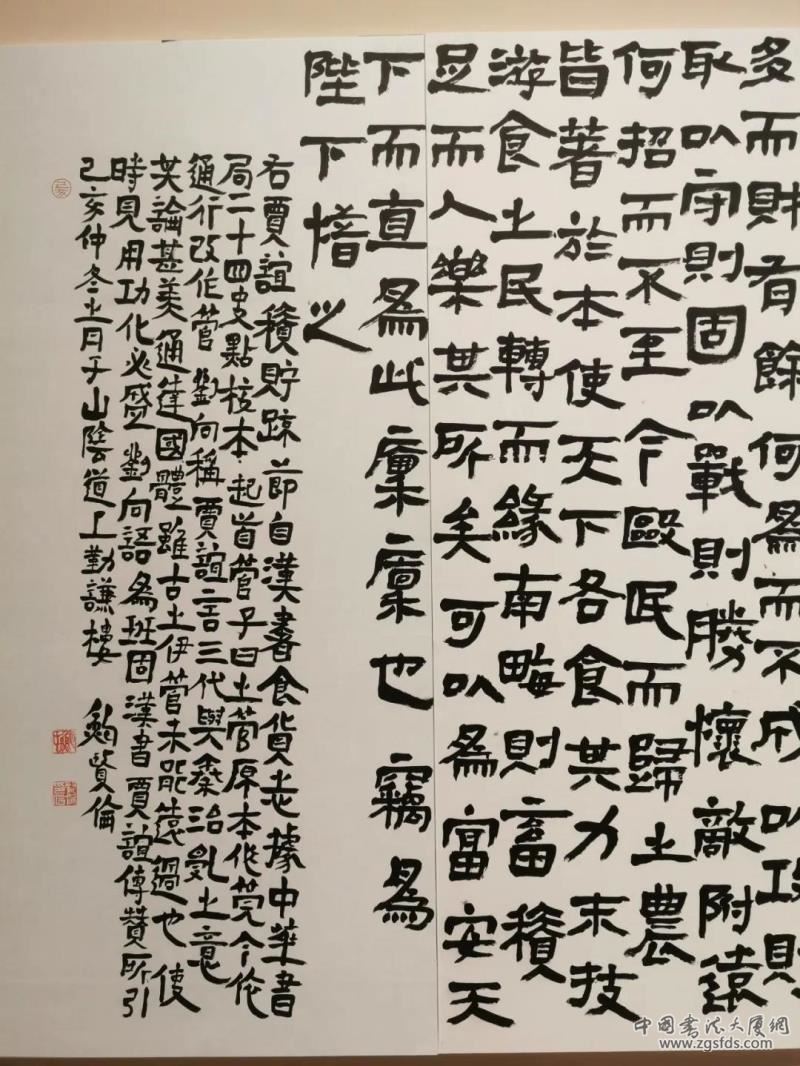 多而財有餘何為而不成以攻則
取以守則固以戰則勝懷敵附遠
何招而不至今毆民而歸之農
皆著於本使天下各食其力末技
游食之民轉而緣南畮則畜積
足而人樂其所矣可以為富安天
下而直為此廩廩也竊為
陛下惜之
右賈誼積貯疏節自漢書食貨志據中華書
局二十四史點校本起首管子曰之管原本作筦今從
通行改作管劉向稱賈誼言三代與秦治亂之意
其論甚美通達國體雖古之伊管未能遠過也使
時見用功化必盛劉向語為班固漢書賈誼傳贊所引
己亥仲冬之月于山陰道上勤謙樓 鮑賢倫
中國書法大厦網
www.zgsfds.com